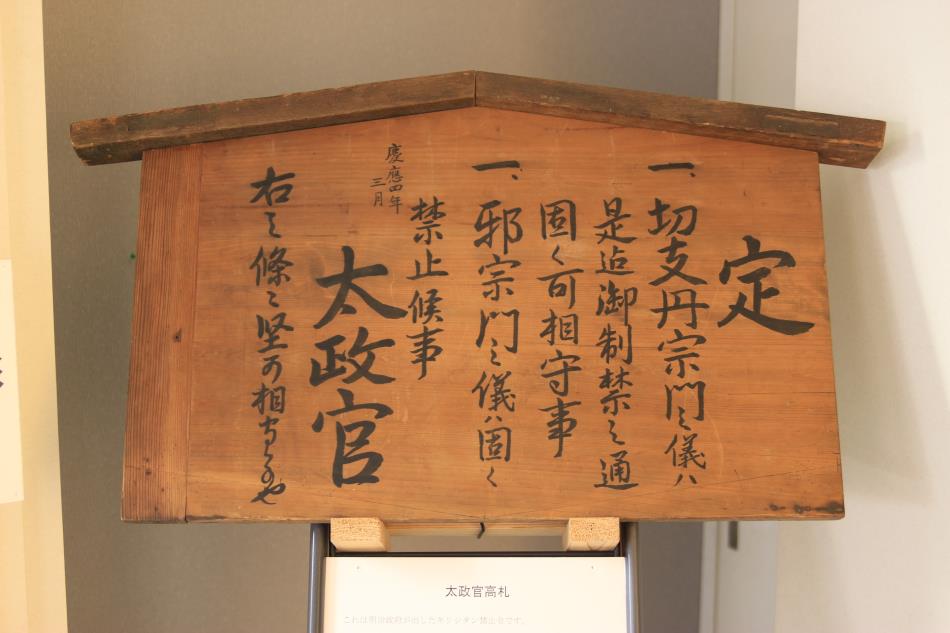 定
一、切支丹宗門之儀ハ
是迄御制禁之通
固く可相守事
一、邪宗門之儀ハ固く
禁止候事
慶應四年
三月
太政官
右之條々堅可相守もの也
太政官高札
これは明治政府が出したキリシタン禁止令です。